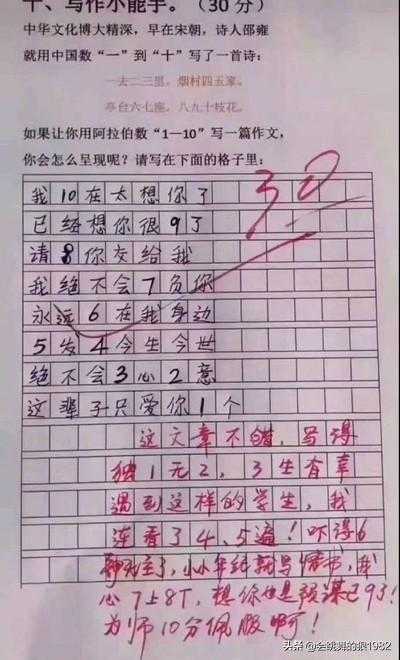 十、写作小能手。（30分）
中华文化博大精深，早在宋朝，诗人邵雍
就用中国数“一”到“十”写了一首诗：
一去二三里，烟村四五家。
亭台六七座，八九十枝花。
如果让你用阿拉伯数“1—10”写一篇作文，
你会怎么呈现呢？请写在下面的格子里：
30
我10在太想你了
已经想你很9了
请8你交给我
我绝不会7负你
永远6在我身边
5发4今生今世
绝不会3心2意
这辈子只爱你1个
这文章不错，写得
独1无2，3生有幸
遇到这样的学生，我
连看了4、5遍！吓得6
神无主了，小小年纪就写情书，我
心7上8下，想你也是预谋已9了！
为师10分佩服啊！
头条@全跳舞的狼1982